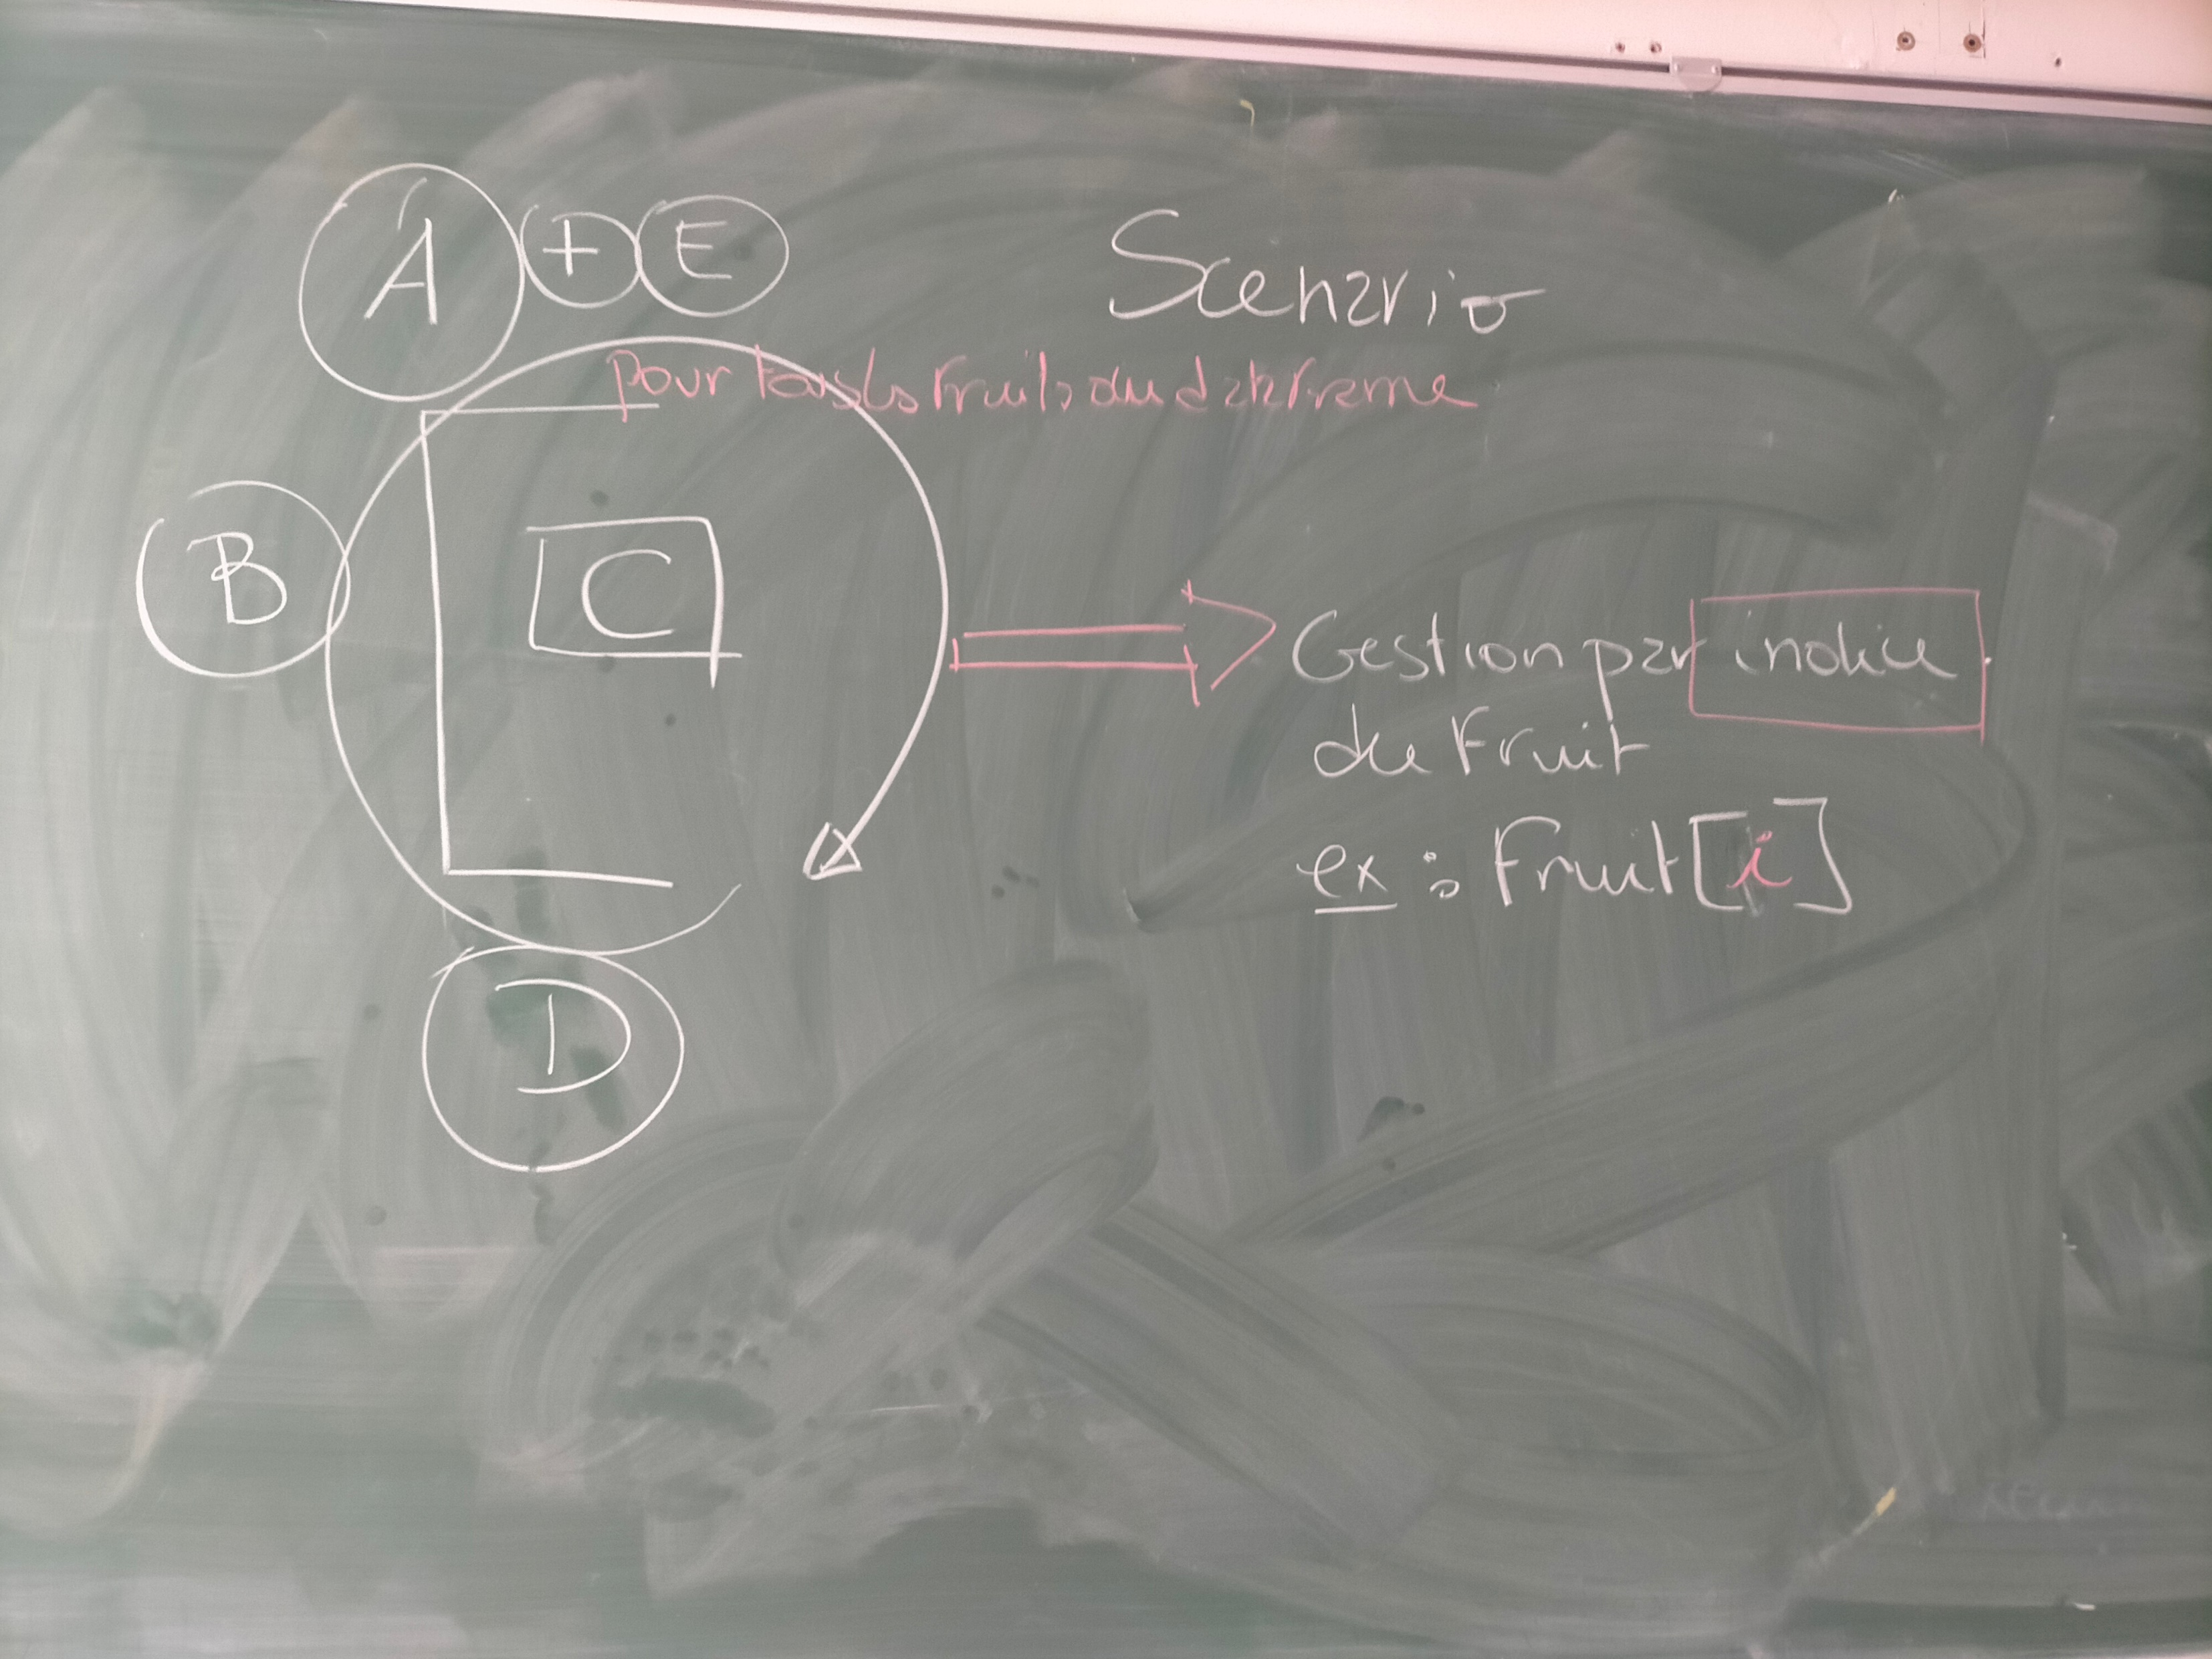 A + E
Scenario
pour tous les fruits du dataframe
B
C
Gestion par indice
du Fruit
ex : Fruit [i]
D